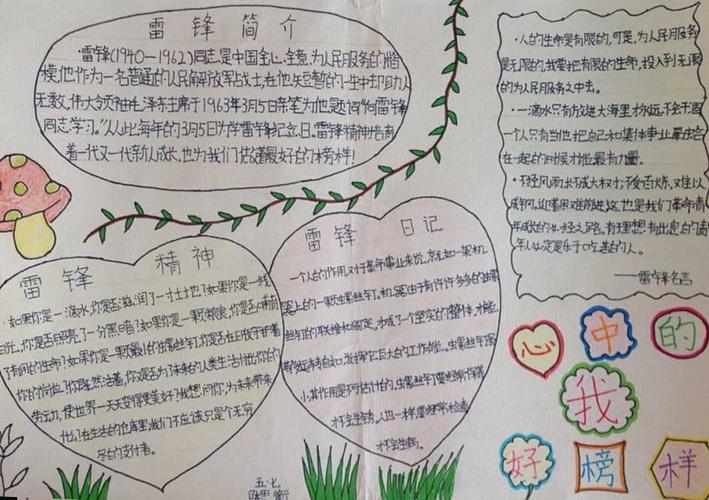 雷锋简介
·雷锋(1940—1962)同志,是中国全心全意为人民服务的楷
模,他作为一名普通的人民解放军战士,在他短暂的一生中却助人
无数。伟大领袖毛泽东主席于1963年3月5日亲笔为他题词“向雷锋
同志学习。”从此每年的3月5日为学雷锋纪念日。雷锋精神培育
着一代又一代新人成长,也为我们做着最好的榜样!
·人的生命是有限的,可是,为人民服务
是无限的,我要把有限的生命,投入到无限
的为人民服务之中去。
·一滴水只有放进大海里才永远不会干涸
一个人只有当他把自己和集体事业融合
在一起的时候才能最有力量。
·不经风雨,长不成大树;不受百炼,难以
成钢。迎着困难前进,这也是我们革命青
年成长的必经之路。有理想有出息的青
年人必定是乐于吃苦的人。
——雷锋名言
雷锋精神
·如果你是一滴水,你是否滋润了一寸土地?如果你是一线
阳光,你是否照亮了一分黑暗?如果你是一颗粮食,你是否哺育
了有用的生命?如果你是一颗最小的螺丝钉,你是否在坚守着
你的岗位?你既然活着,你是否为了未来的人类生活付出你的
劳动力,使世界一天天变得更美好?我想问你,为未来带来
什么?在生活的仓库里,我们不应该只是个无穷
尽的支付者。
雷锋日记
一个人的作用,对于革命事业来说,就如一架机
器上的一颗螺丝钉。机器由于有许许多多的螺
丝钉的联接和固定,才成了个坚实的整体,才能
小,其作用是不可估计的。螺丝钉要经常保养
才不会生锈。人也一样要经常检查
才不会生锈。
心中的
我
好榜样
五·七